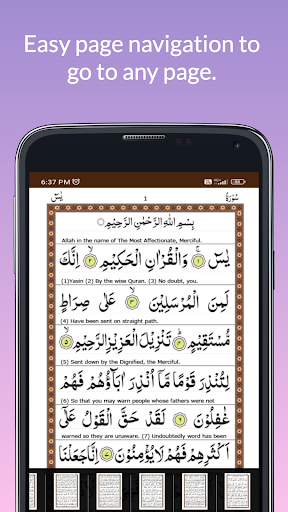 Easy page navigation to
go to any page.
6:37 PM
يٰسٓ 1 سُوْرَةُ
بِسْمِ اللّٰهِ الرَّحْمٰنِ الرَّحِيْمِ
Allah in the name of The Most Affectionate, Merciful.
يٰسٓ ۝١ وَالْقُرْاٰنِ الْحَكِيْمِ ۝٢ اِنَّكَ
(1)Yasin (2) By the wise Quran. (3) No doubt, you.
لَمِنَ الْمُرْسَلِيْنَ ۝٣ عَلٰى صِرَاطٍ
(4) Have been sent on straight path.
مُّسْتَقِيْمٍ ۝٤ تَنْزِيْلَ الْعَزِيْزِ الرَّحِيْمِ ۝٥
(5) Sent down by the Dignified, the Merciful.
لِتُنْذِرَ قَوْمًا مَّآ اُنْذِرَ اٰبَآؤُهُمْ فَهُمْ
(6) So that you may warn people whose fathers were not
غٰفِلُوْنَ ۝٦ لَقَدْ حَقَّ الْقَوْلُ عَلٰٓى
warned so they are unaware. (7) Undoubtedly word has been
اَكْثَرِهِمْ فَهُمْ لَا يُؤْمِنُوْنَ ۝٧ اِنَّا جَعَلْنَا